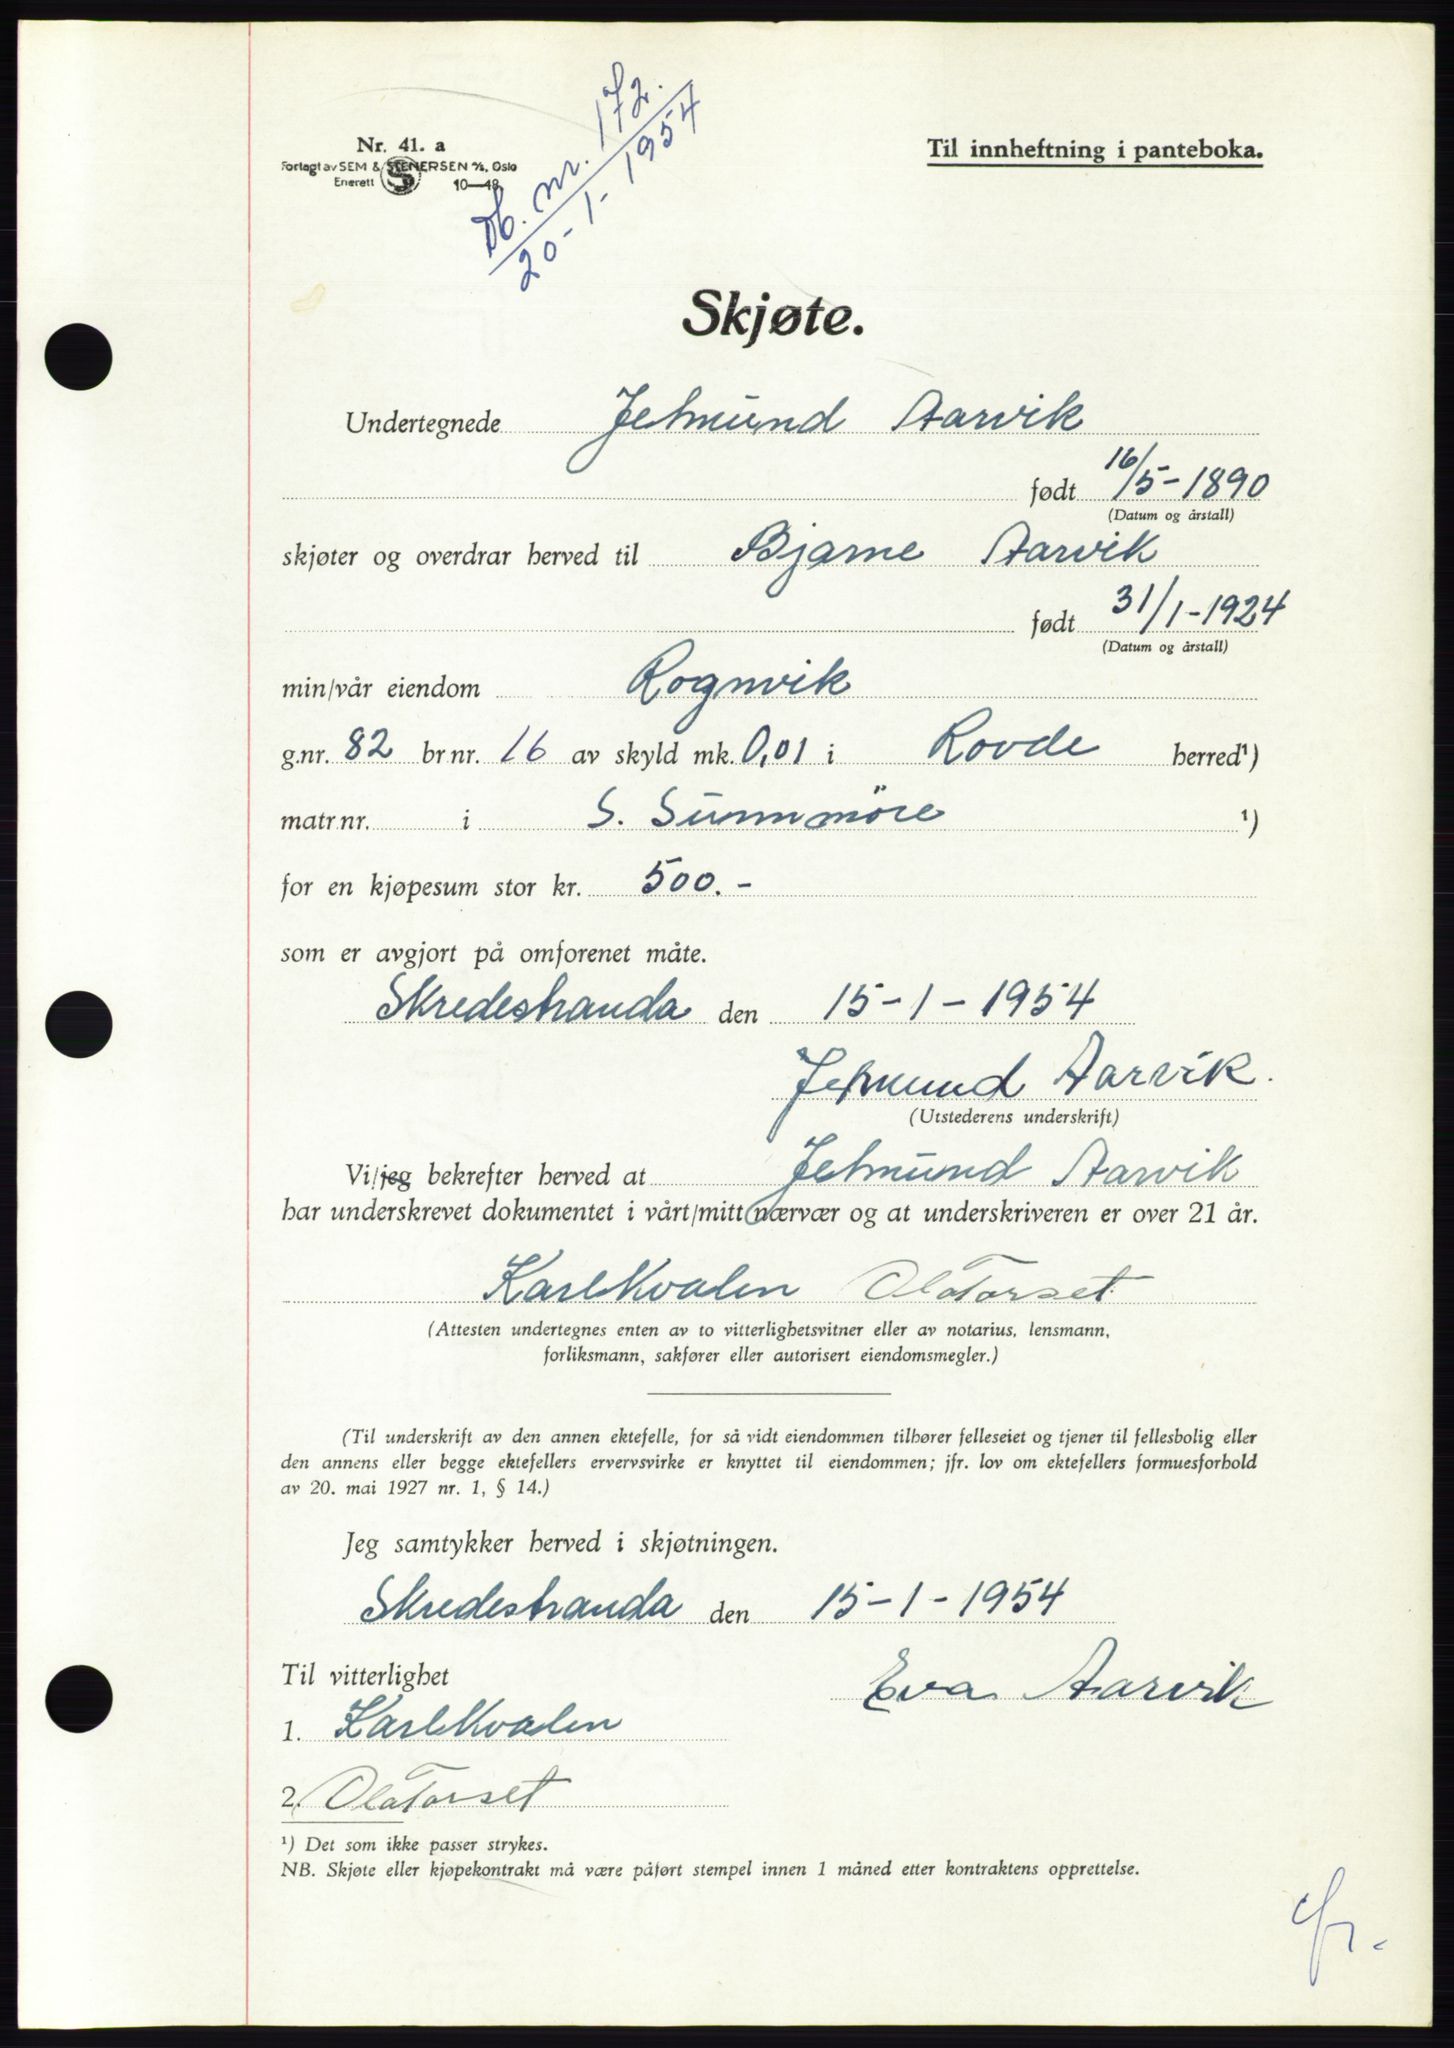 Nr. 41. a
Forlagt av SEM & STENERSEN A/S, Oslo
Enerett 10—48
Db. nr. 172.
20-1-1954
Til innheftning i panteboka.
Skjøte.
Undertegnede Jetmund Aarvik
født 16/5-1890
(Datum og årstall)
skjøter og overdrar herved til Bjarne Aarvik
født 31/1-1924
(Datum og årstall)
min/vår eiendom Rognvik
g.nr. 82 br.nr. 16 av skyld mk. 0,01 i Rovde herred¹)
matr.nr. i S. Sunnmöre ¹)
for en kjøpesum stor kr. 500.-
som er avgjort på omforenet måte.
Skredestranda den 15-1-1954
Jetmund Aarvik.
(Utstederens underskrift)
Vi/jeg bekrefter herved at Jetmund Aarvik
har underskrevet dokumentet i vårt/mitt nærvær og at underskriveren er over 21 år.
Karl Kvalen Ola Torset
(Attesten undertegnes enten av to vitterlighetsvitner eller av notarius, lensmann,
forliksmann, sakfører eller autorisert eiendomsmegler.)
(Til underskrift av den annen ektefelle, for så vidt eiendommen tilhører felleseiet og tjener til fellesbolig eller
den annens eller begge ektefellers ervervsvirke er knyttet til eiendommen; jfr. lov om ektefellers formuesforhold
av 20. mai 1927 nr. 1, § 14.)
Jeg samtykker herved i skjøtningen.
Skredestranda den 15-1-1954
Til vitterlighet
Eva Aarvik
1. Karl Kvalen
2. Ola Torset
¹) Det som ikke passer strykes.
NB. Skjøte eller kjøpekontrakt må være påført stempel innen 1 måned etter kontraktens opprettelse.